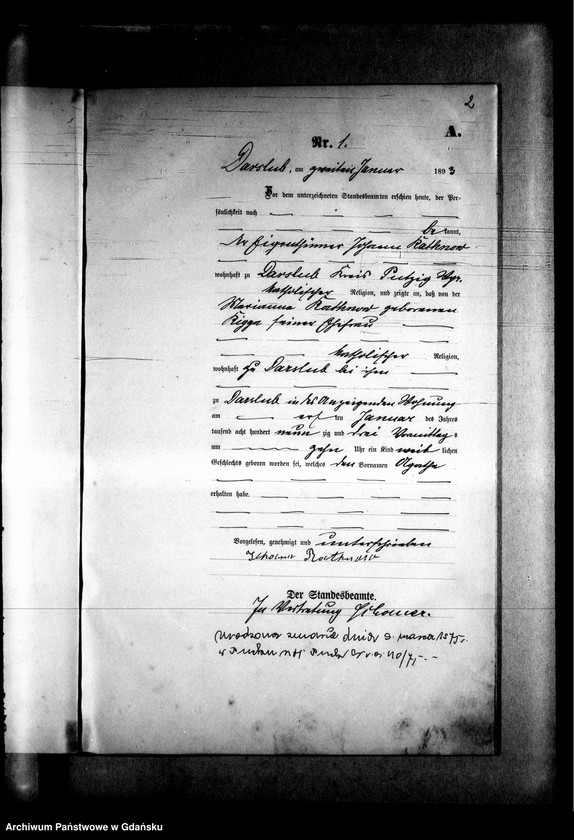 2
A.
Nr. 1.
Darslub, am zweiten Januar 1893
Vor dem unterzeichneten Standesbeamten erschien heute, der Per-
sönlichkeit nach
be kannt,
der Eigenthümer Johann Kathnow
wohnhaft zu Darslub Kreis Putzig
katholischer Religion, und zeigte an, daß von der
Marianna Kathnow geborenen
seiner Ehefrau
katholischer Religion,
wohnhaft zu Darslub bei ihm
zu Darslub in des Anzeigenden Wohnung
am ersten Januar des Jahres
tausend acht hundert neun zig und drei Vormittags
um zehn Uhr ein Kind weib lichen
Geschlechts geboren worden sei, welches den Vornamen Agathe
erhalten habe.
Vorgelesen, genehmigt und unterschrieben
Johann
Der Standesbeamte.
In Vertretung
zmarła dnia 9. marca 1975r.
Archiwum Państwowe w Gdańsku